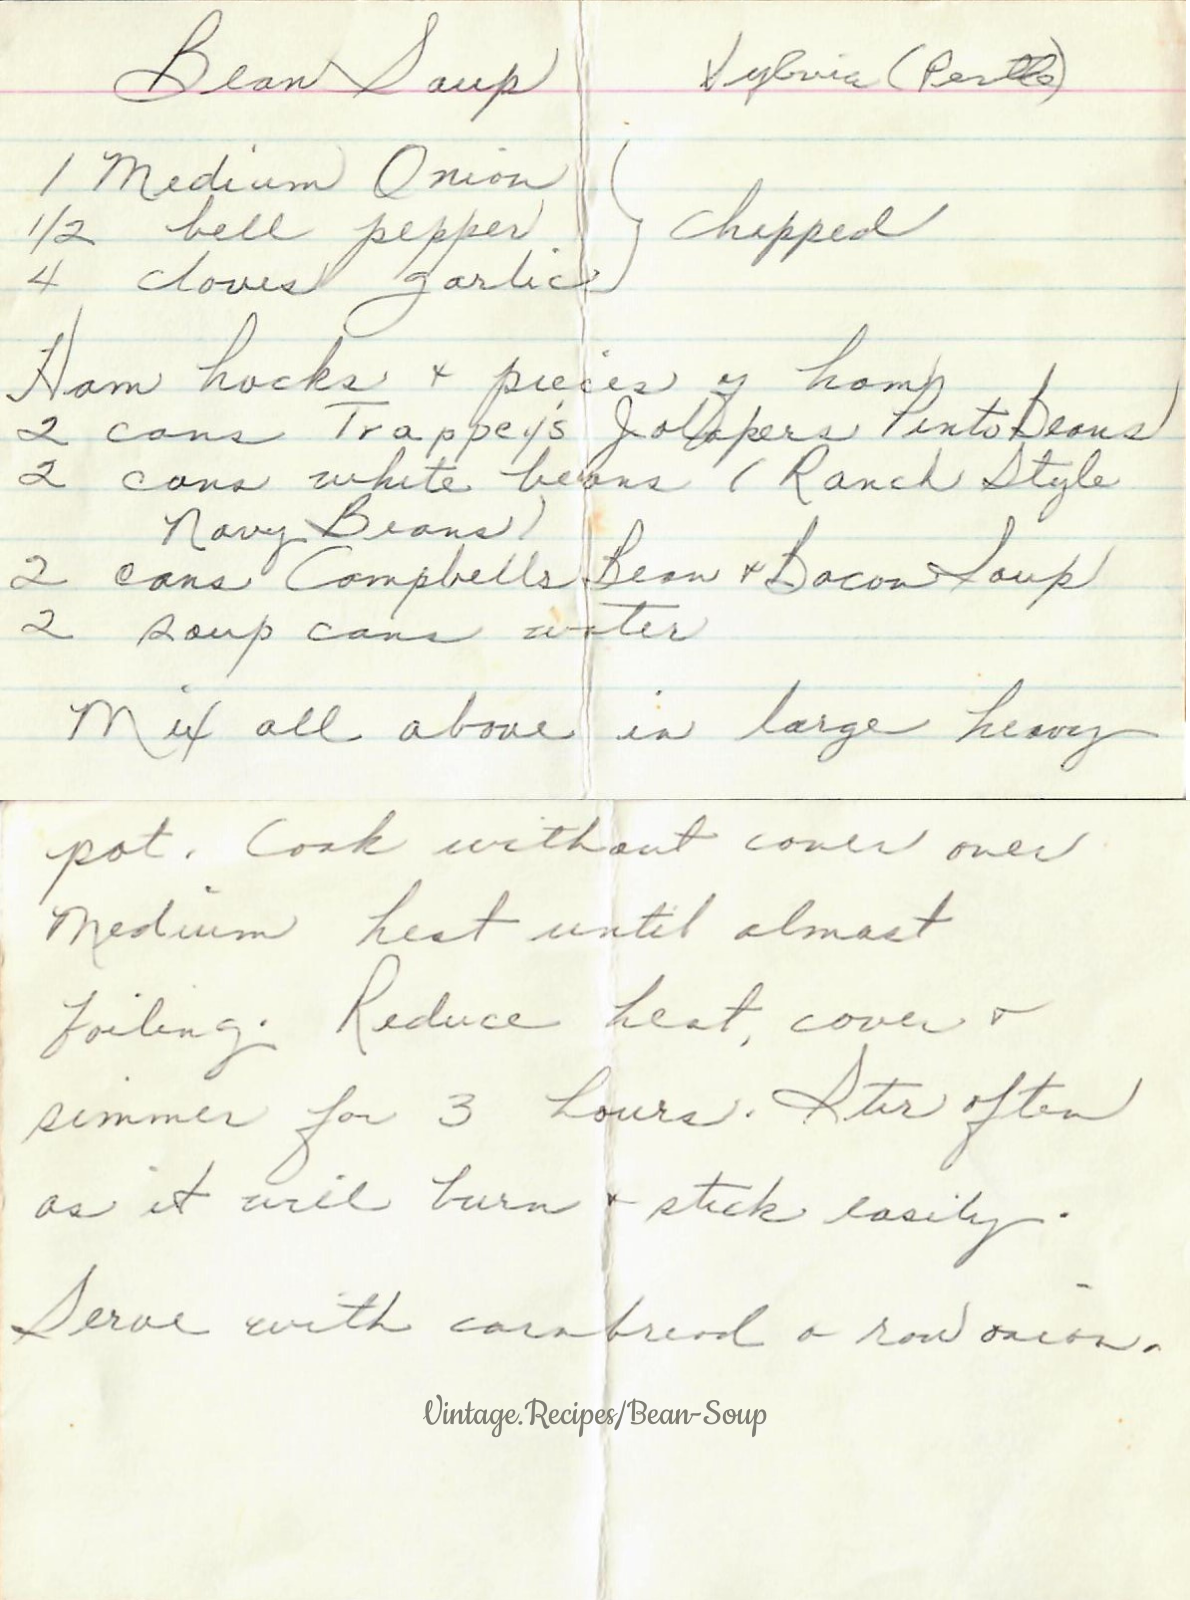 Bean Soup Sylvia (Pertle)
1 Medium Onion
1/2 bell pepper } chopped
4 cloves garlic
Ham hocks + pieces of ham
2 cans Trappey's Jallapeno Pinto beans
2 cans white beans (Ranch Style
Navy Beans)
2 cans Campbells Bean + Bacon Soup
2 soup cans water
Mix all above in large heavy
pot. Cook without cover over
Medium heat until almost
boiling. Reduce heat, cover +
simmer for 3 hours. Stir often
as it will burn + stick easily.
Serve with cornbread & raw onion.
Vintage.Recipes/Bean-Soup